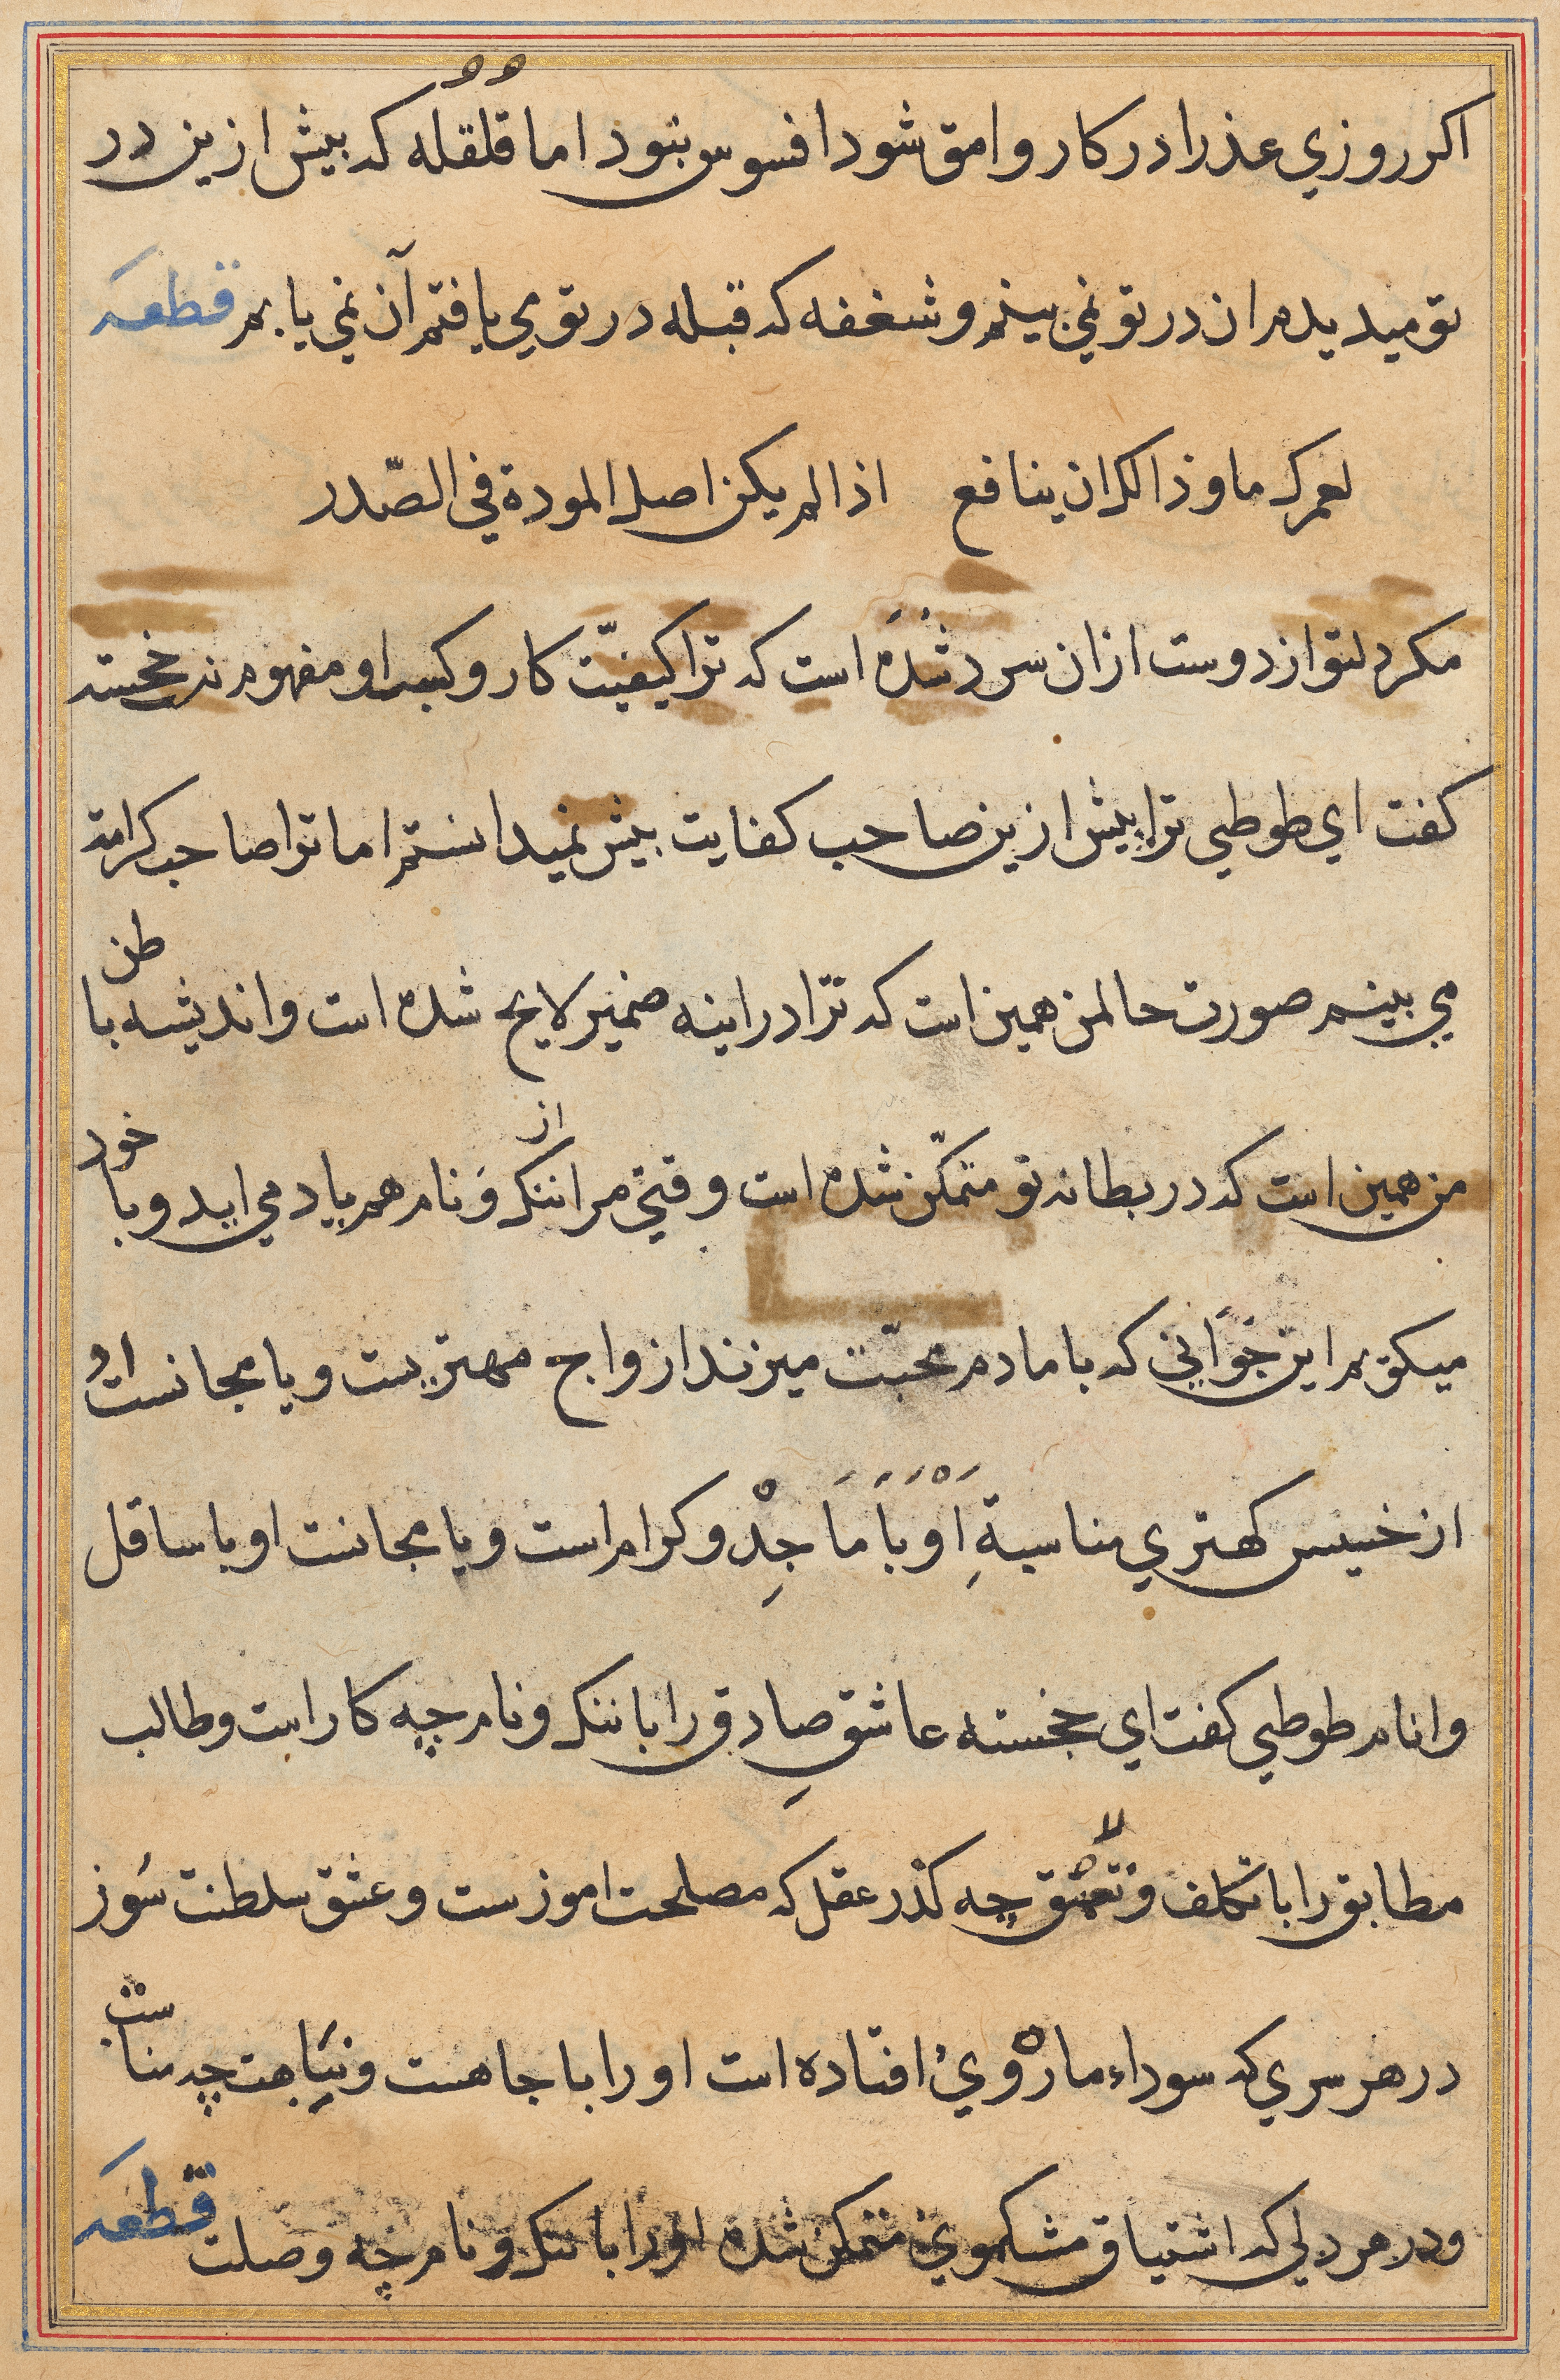 اكر روزي عذرا در كار وامق شود افسوس نبود اما قلقله كه بيش ازين در
تو ميديدم ان در تو نمي بينم و شغفه كه قبله در تو مي يافتم آن نمي يابم قطعه
لعمرك ما وذ اللران ينافع اذا لم يكن اصل المودة في الصّدر
مكر دلتو از دوست ازان سرد شده است كه ترا كيفيّت كار و كيب او مفهوم نه خجسته
كفت اي طوطي ترا بيش ازين صاحب كفايت بيش نميدانستم اما ترا صاحب كرامة
مي بينم صورت حالمن همين است كه ترا در اينه ضمير لايح شده است و انديشه باطن
من همين است كه در بطانه تو متمكّن شده است وقتي مرا از ننك و نام هم ياد مي ايد و با خود
ميكويم اين جواني كه با ما دم محبّت ميزند از واج مهتريست و يا مجانست او
از خسيس كهتري مناسبةِ اَوْ بَا مَاجِدْ و كرام است و يا مجانست او با ساقل
و انام طوطي كفت اي خجسته عاشقِ صادق را با ننك و نام چه كار است و طالب
مطابق را با تكلف و تعشق چه كذر عقل كه مصلحت اموزست و عشق سلطنت سوز
در هر سري كه سوداء مارْويُ افتاده است او را با جاهست و نباهت چه مناست
و در هر دلي كه اشتياق مشكموي متمكن شده او را با ننك و نام چه وصلت قطعه